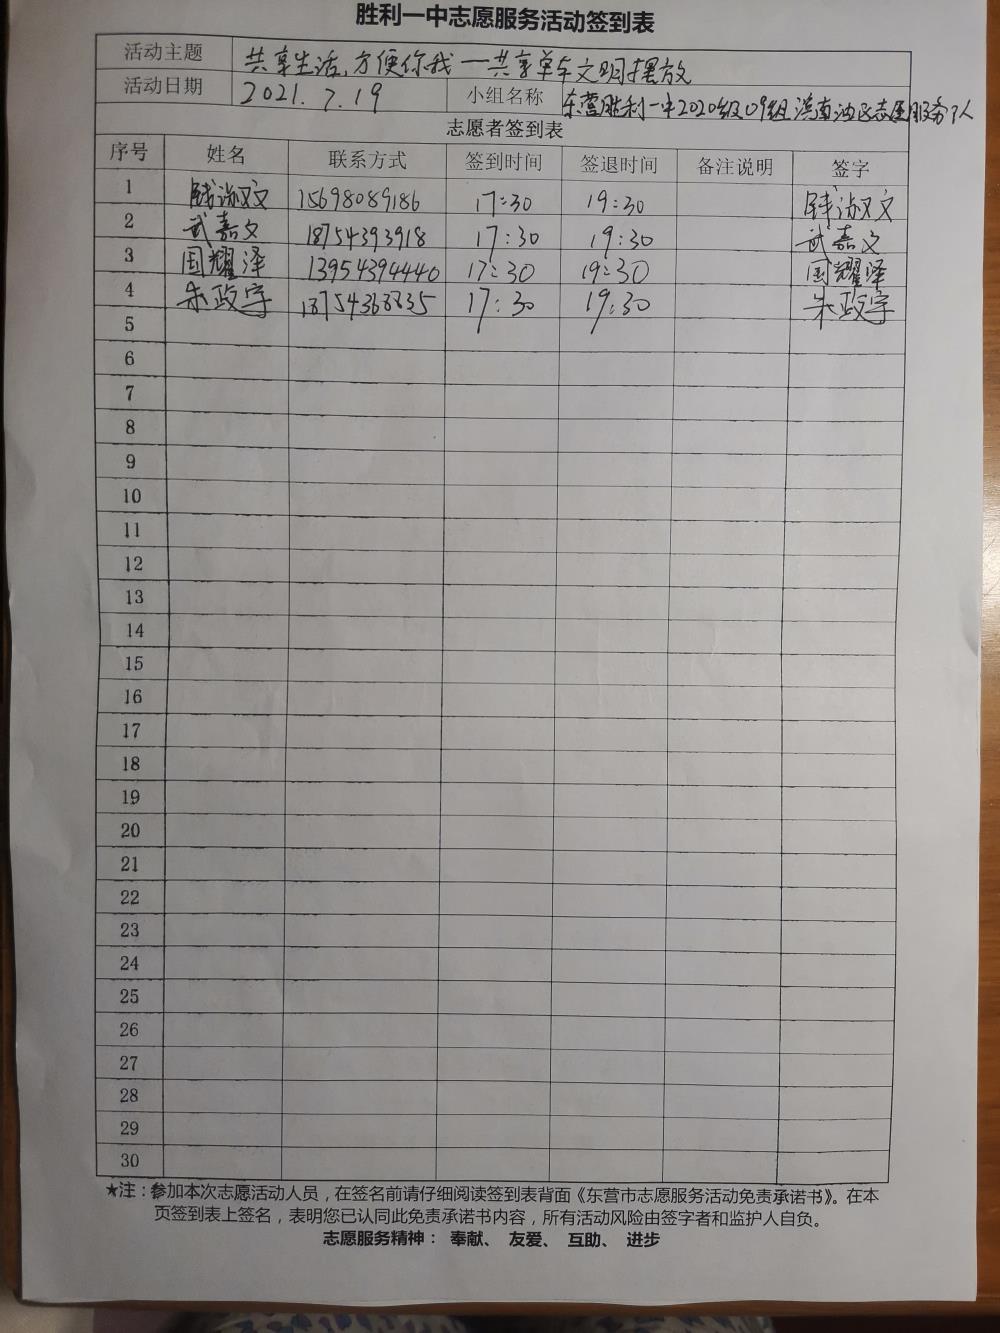 胜利一中志愿服务活动签到表
活动主题 共享生活,方便你我—共享单车文明摆放
活动日期 2021.7.19 小组名称 东营胜利一中2020级09组滨南油区志愿服务个人
志愿者签到表
序号 姓名 联系方式 签到时间 签退时间 备注说明 签字
1 钱淑文 15698089186 17:30 19:30 钱淑文
2 武嘉文 18754393918 17:30 19:30 武嘉文
3 国耀泽 13954394440 17:30 19:30 国耀泽
4 朱政宇 18754368835 17:30 19:30 朱政宇
5
6
7
8
9
10
11
12
13
14
15
16
17
18
19
20
21
22
23
24
25
26
27
28
29
30
★注:参加本次志愿活动人员,在签名前请仔细阅读签到表背面《东营市志愿服务活动免责承诺书》。在本
页签到表上签名,表明您已认同此免责承诺书内容,所有活动风险由签字者和监护人自负。
志愿服务精神: 奉献、 友爱、 互助、 进步